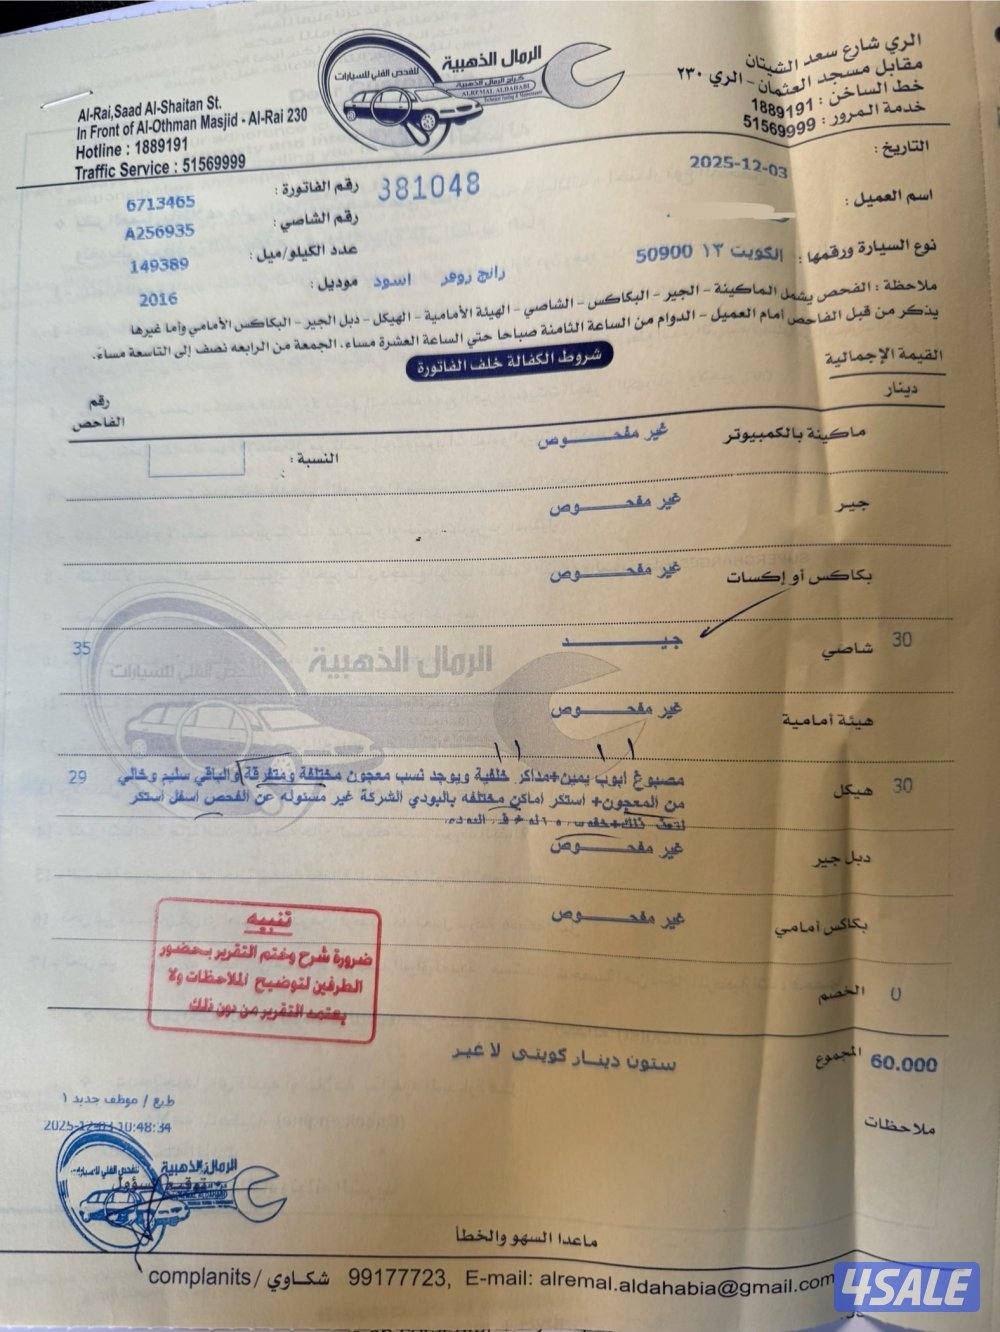 الرمال الذهبية
للفحص الفني للسيارات
كراج الرمال الذهبية
ALREMAL ALDAHABI
الري شارع سعد الشيتان
مقابل مسجد العثمان - الري ٢٣٠
خط الساخن : 1889191
خدمة المرور : 51569999
Al-Rai,Saad Al-Shaitan St.
In Front of Al-Othman Masjid - Al-Rai 230
Hotline : 1889191
Traffic Service : 51569999
التاريخ : 2025-12-03
رقم الفاتورة : 6713465
381048
اسم العميل :
رقم الشاصي : A256935
نوع السيارة ورقمها : الكويت ١٣ 50900
عدد الكيلو/ميل : 149389
رانج روفر اسود
موديل : 2016
ملاحظة : الفحص يشمل الماكينة - الجير - البكاكس - الشاصي - الهيئة الأمامية - الهيكل - دبل الجير - البكاكس الأمامي وأما غيرها
يذكر من قبل الفاحص أمام العميل - الدوام من الساعة الثامنة صباحا حتي الساعة العشرة مساء، الجمعة من الرابعه نصف إلى التاسعة مساءً.
شروط الكفالة خلف الفاتورة
القيمة الإجمالية
دينار
رقم الفاحص
ماكينة بالكمبيوتر غير مفحـــــوص
النسبة :
جير غير مفحـــــوص
بكاكس أو إكسات غير مفحـــــوص
30 شاصي جيـــــد 35
هيئة أمامية غير مفحـــــوص
30 هيكل مصبوغ ابوب يمين+مداكر خلفية ويوجد نسب معجون مختلفة ومتفرقة والباقي سليم وخالي 29
من المعجون+ استكر اماكن مختلفه بالبودي الشركة غير مسئوله عن الفحص اسفل استكر
دبل جير غير مفحـــــوص
بكاكس أمامي غير مفحـــــوص
تنبيه
ضرورة شرح وختم التقرير بحضور
الطرفين لتوضيح الملاحظات ولا
يعتمد التقرير من دون ذلك
الخصم 0
60.000 المجموع ستون دينار كويتى لا غير
ملاحظات
طبع / موظف جديد ١
2025-12-03 10:48:34
الرمال الذهبية
للفحص الفني للسيارات
توقيع المسؤول
ماعدا السهو والخطأ
complanits / شكاوي 99177723, E-mail: alremal.aldahabia@gmail.com
4SALE